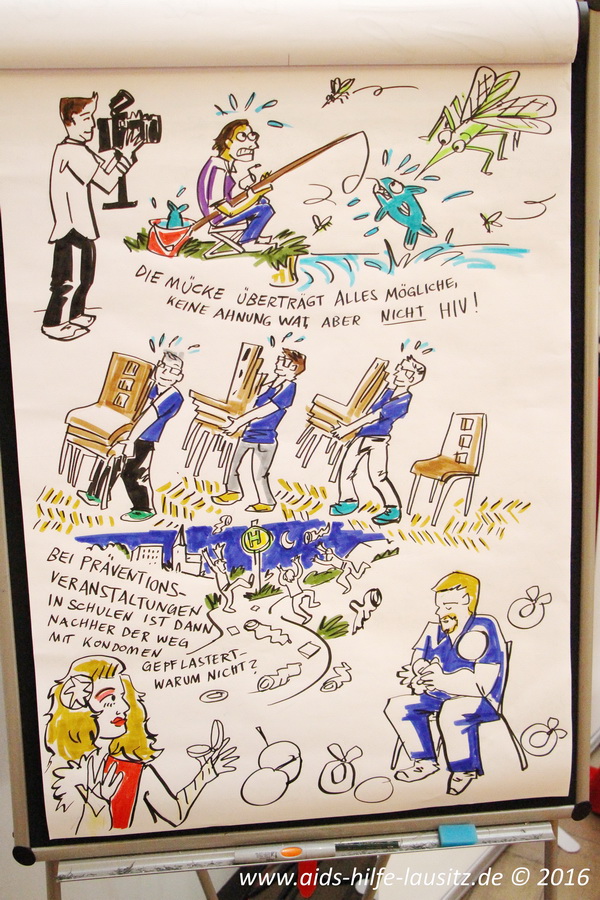 DIE MÜCKE ÜBERTRÄGT ALLES MÖGLICHE,
KEINE AHNUNG WAT, ABER NICHT HIV!
H
BEI PRÄVENTIONS-
VERANSTALTUNGEN
IN SCHULEN IST DANN
NACHHER DER WEG
MIT KONDOMEN
GEPFLASTERT-
WARUM NICHT?
www.aids-hilfe-lausitz.de © 2016